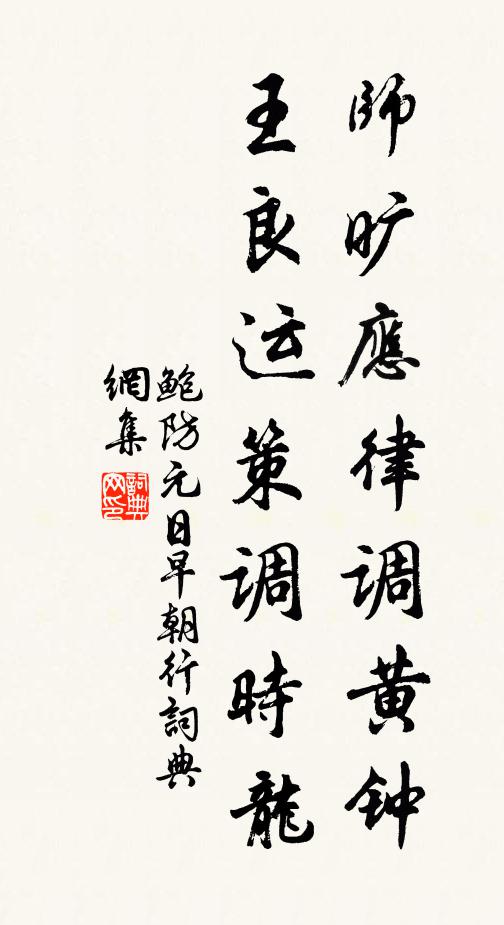 师旷應律调黄钟
王良运策调時龍
鲍防元日早朝行詞典
網集
詞典网印